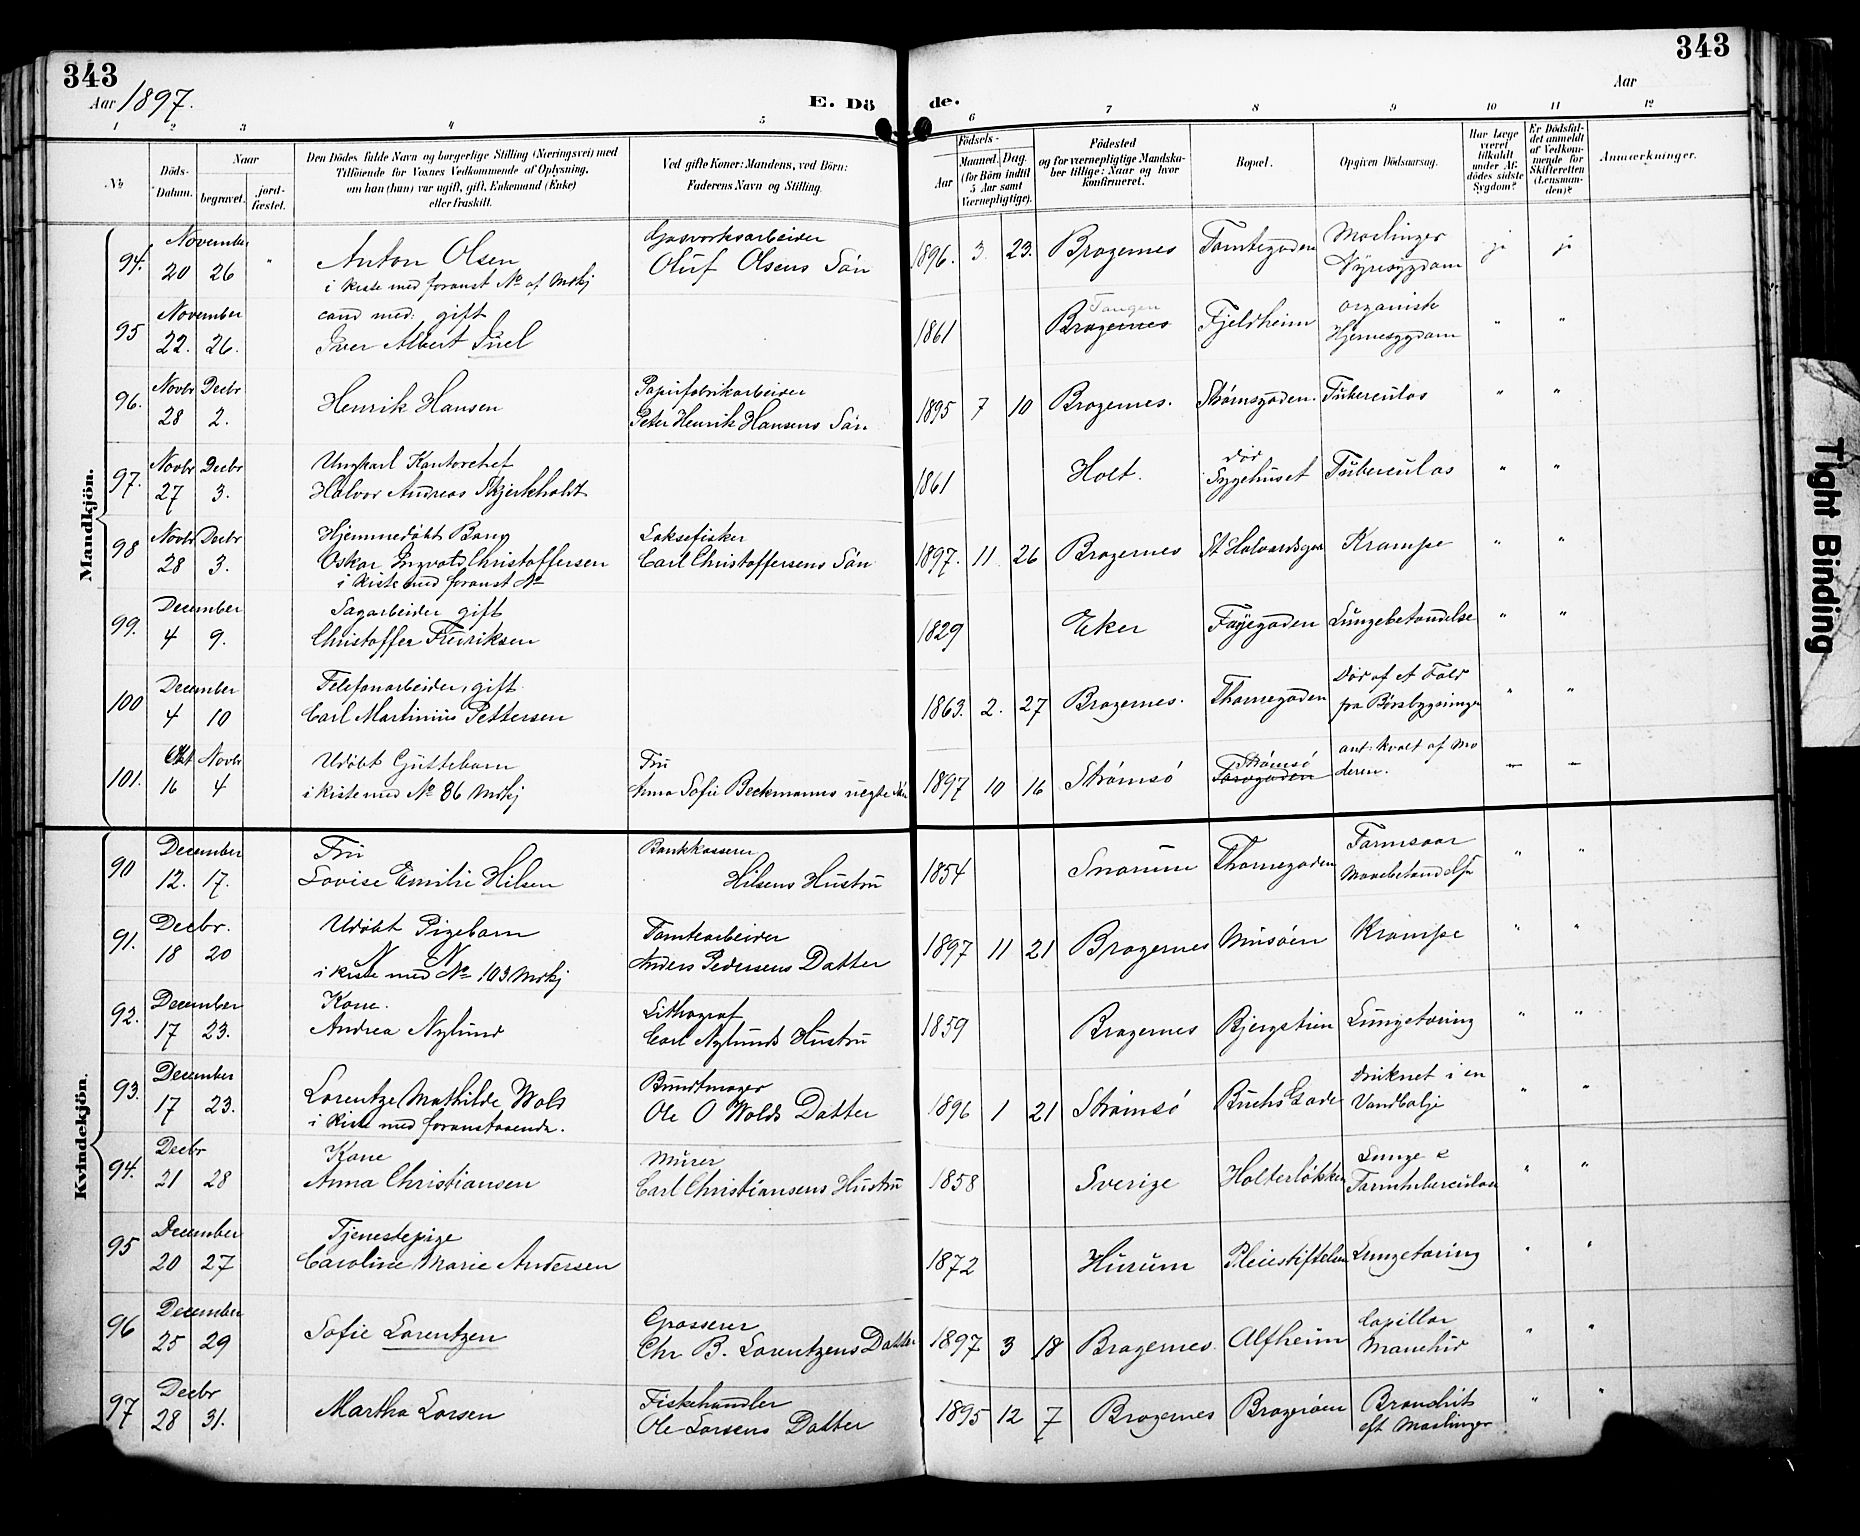 343
Aar 1897.
E. Dö
de.
343
Aar
1 2 3 4 5 6 7 8 9 10 11 12
No
Döds-
Datum.
Naar
begravet.
jord-
fæstet.
Den Dödes fulde Navn og borgerlige Stilling (Næringsvei) med
Tilföiende for Voxnes Vedkommende af Oplysning,
om han (hun) var ugift, gift, Enkemand (Enke)
eller fraskilt.
Ved gifte Koner: Mandens, ved Börn:
Faderens Navn og Stilling.
Födsels-
Aar
Maaned. Dag.
(for Börn indtil
5 Aar samt
Værnepligtige).
Födested
og for værnepligtige Mandska-
ber tillige: Naar og hvor
konfirmeret.
Bopæl.
Opgiven Dödsaarsag.
Har Læge
været
tilkaldt
under Af-
dödes sidste
Sygdom?
Er Dödsfal-
det anmeldt
af Vedkom-
mende for
Skifteretten
(Lensman-
den)?
Anmærkninger.
Mandkjön.
94. November 20 26 "
Anton Olsen
i kiste med foranst No af Mdkj
Gasverksarbeider
Oluf Olsens Sön
1896. 3. 23. Bragernes Tomtegaden
Meslinger
Nyresygdom
ja ja
95 November 22. 26.
cand med: gift
Iver Albert Juel
1861
Tangen
Bragernes Fjeldheim
organisk
Hjernesygdom
" "
96. Novbr Decbr 28 2.
Henrik Hansen
Papirfabrikarbeider
Peter Henrik Hansens Sön
1895 7 10 Bragernes. Strømsgaden. Tuberculos " "
97. Novbr Decbr 27 3.
Ungkarl Kontorchef
Halvor Andreas Skjerkholdt
1861 Holt.
død
Sygehuset Tuberculos " "
98 Novbr Decbr 28 3.
Hjemmedøbt Barn
Oskar Ingvald Christoffersen
i kiste med foranst No
Laksefisker
Carl Christoffersens Sön
1897. 11 26 Bragernes St Halvardsga Krampe " "
99. December 4 9.
Sagarbeider gift
Christoffer Fredriksen
1829 Eker Fayegaden Lungebetændelse " "
100 December 4 10
Telefonarbeider, gift
Carl Martinius Pettersen
1863. 2. 27 Bragernes. Thornegaden
Død af et Fald
fra Børsbygninge
" "
101. Okt Novbr 16 4
Udøbt Guttebarn
i kiste med No 86 Mdkj
Fru
Anna Sofie Beckmannes uegte Sön
1897 10 16 Strømsö
Strømsö
ant: kvalt af Mo
deren.
— —
Kvindekjön.
90 December 12. 17.
Fru
Lovise Emilie Hilsen
Bankkasserer
Hilsens Hustru
1854 Snarum Thornegaden
Tarmsaar
Mavebetændelse
" "
91. Decbr. 18 20
Udøbt Pigebarn
N N
i kiste med No 103 Mdkj
Tomtearbeider
Anders Pedersens Datter
1897 11 21 Bragernes Musøen Krampe " "
92. December 17 23.
Kone.
Andrea Nylund
Lithograf
Carl Nylunds Hustru
1859 Bragernes Bjergstien Lungetæring " "
93. December 17 23.
Lorentze Mathilde Wold
i kiste med foranstaaende.
Bundtmager
Ole O Wolds Datter
1896 1 21 Strømsö Buchs Gade
druknet i en
Vandbalje
" "
94. Decbr 21 28
Kone
Anna Christiansen
Murer
Carl Christiansens Hustru
1858 Sverige Holterløkken
Lunge &
Tarmtuberculose
" "
95 December 20 27
Tjenestepige
Caroline Marie Andersen
1872 Hurum Pleiestiftelsen Lungetæring " "
96 December 25 29
Sofie Lorentzen
Grosserer
Chr B. Lorentzens Datter
1897 3 18 Bragernes Alfheim
Capillar
" "
97 Decbr 28 31.
Martha Larsen
Fiskehandler
Ole Larsens Datter
1895 12 7 Bragernes Bragerøen
Bronchit
eft Meslinger
" "
Tight Binding